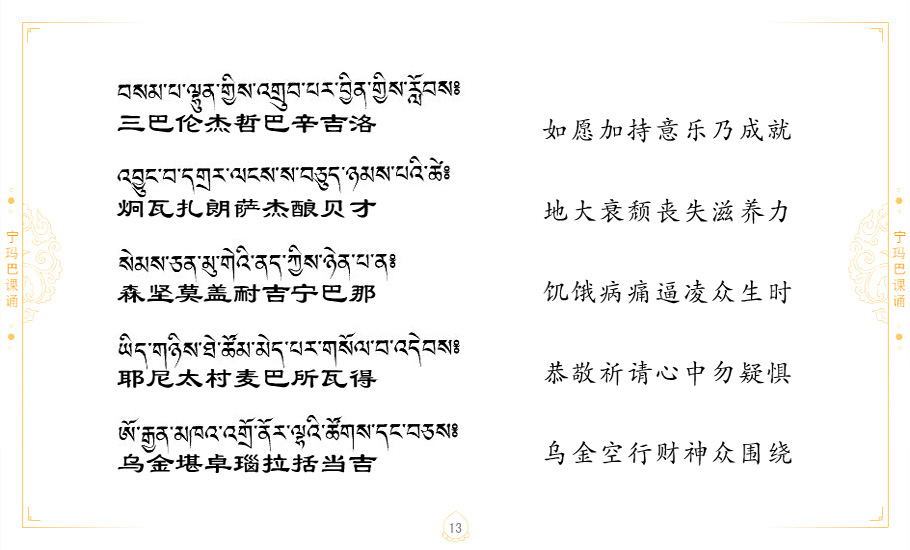 བསམ་པ་ལྷུན་གྱིས་འགྲུབ་པར་བྱིན་གྱིས་རློབས༔
三巴伦杰哲巴辛吉洛
如愿加持意乐乃成就
འབྱུང་བ་དགྲར་ལངས་ས་བཅུད་ཉམས་པའི་ཚེ༔
炯瓦扎朗萨杰酿贝才
地大衰颓丧失滋养力
སེམས་ཅན་མུ་གེའི་ནད་ཀྱིས་ཉེན་པ་ན༔
森坚莫盖耐吉宁巴那
饥饿病痛逼凌众生时
ཡིད་གཉིས་ཐེ་ཚོམ་མེད་པར་གསོལ་བ་འདེབས༔
耶尼太村麦巴所瓦得
恭敬祈请心中勿疑惧
ཨོ་རྒྱན་མཁའ་འགྲོ་ནོར་ལྷའི་ཚོགས་དང་བཅས༔
乌金堪卓瑙拉括当吉
乌金空行财神众围绕
宁玛巴课诵
宁玛巴课诵
13